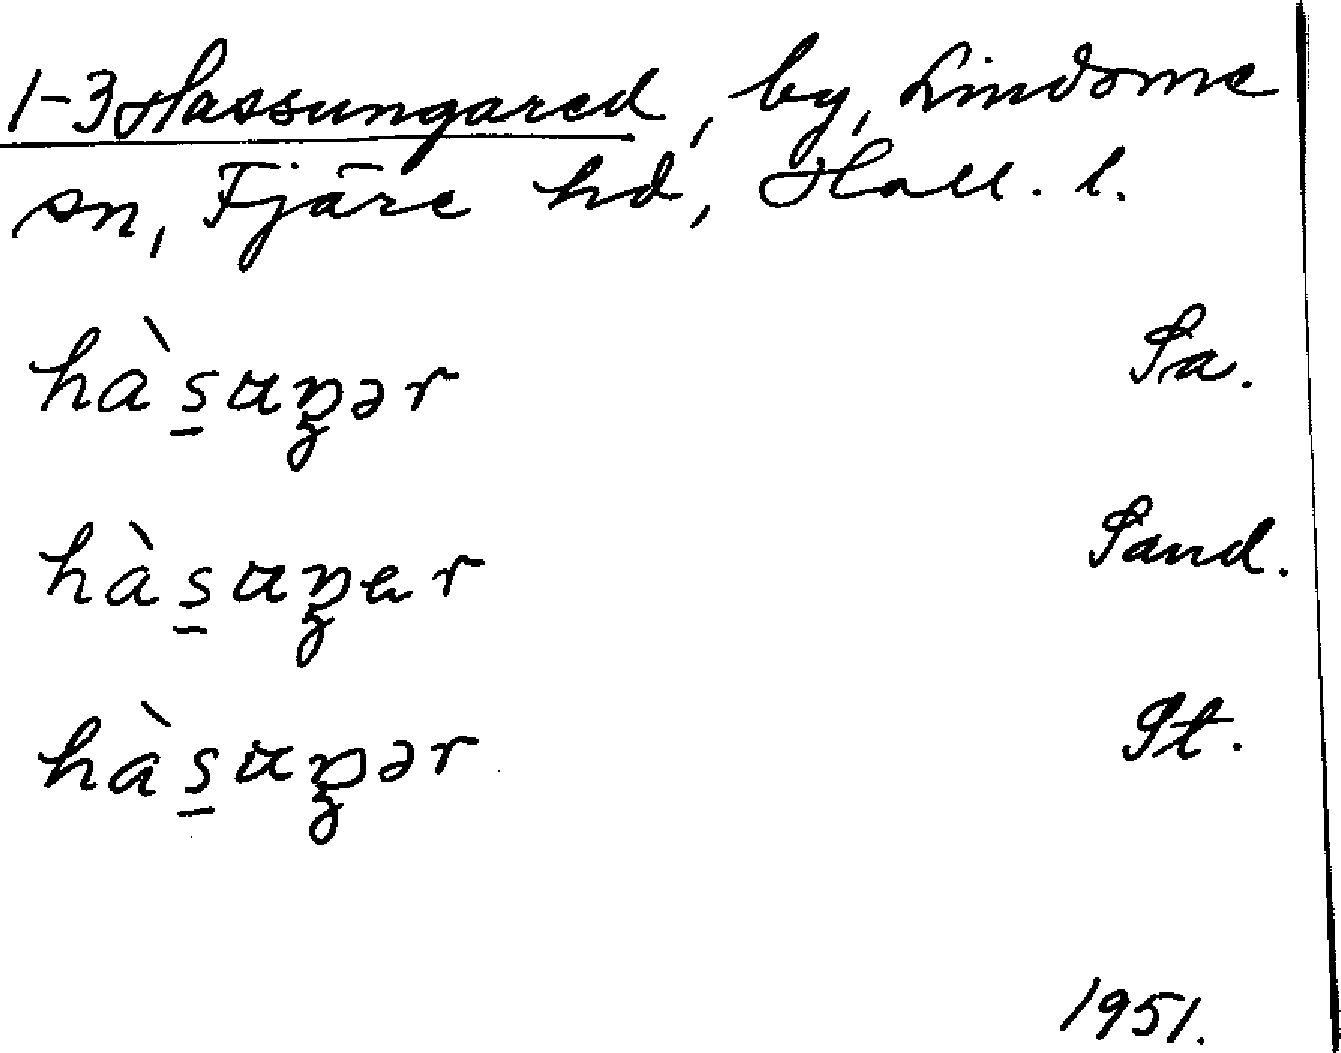 1-3 Hassungared, by, Lindome
sn, Fjäre hd, Hall. l.
hàs̠ɯŋər Sa.
hàs̠ɯŋɐr Sand.
hàs̠ɯŋər St.
1951.